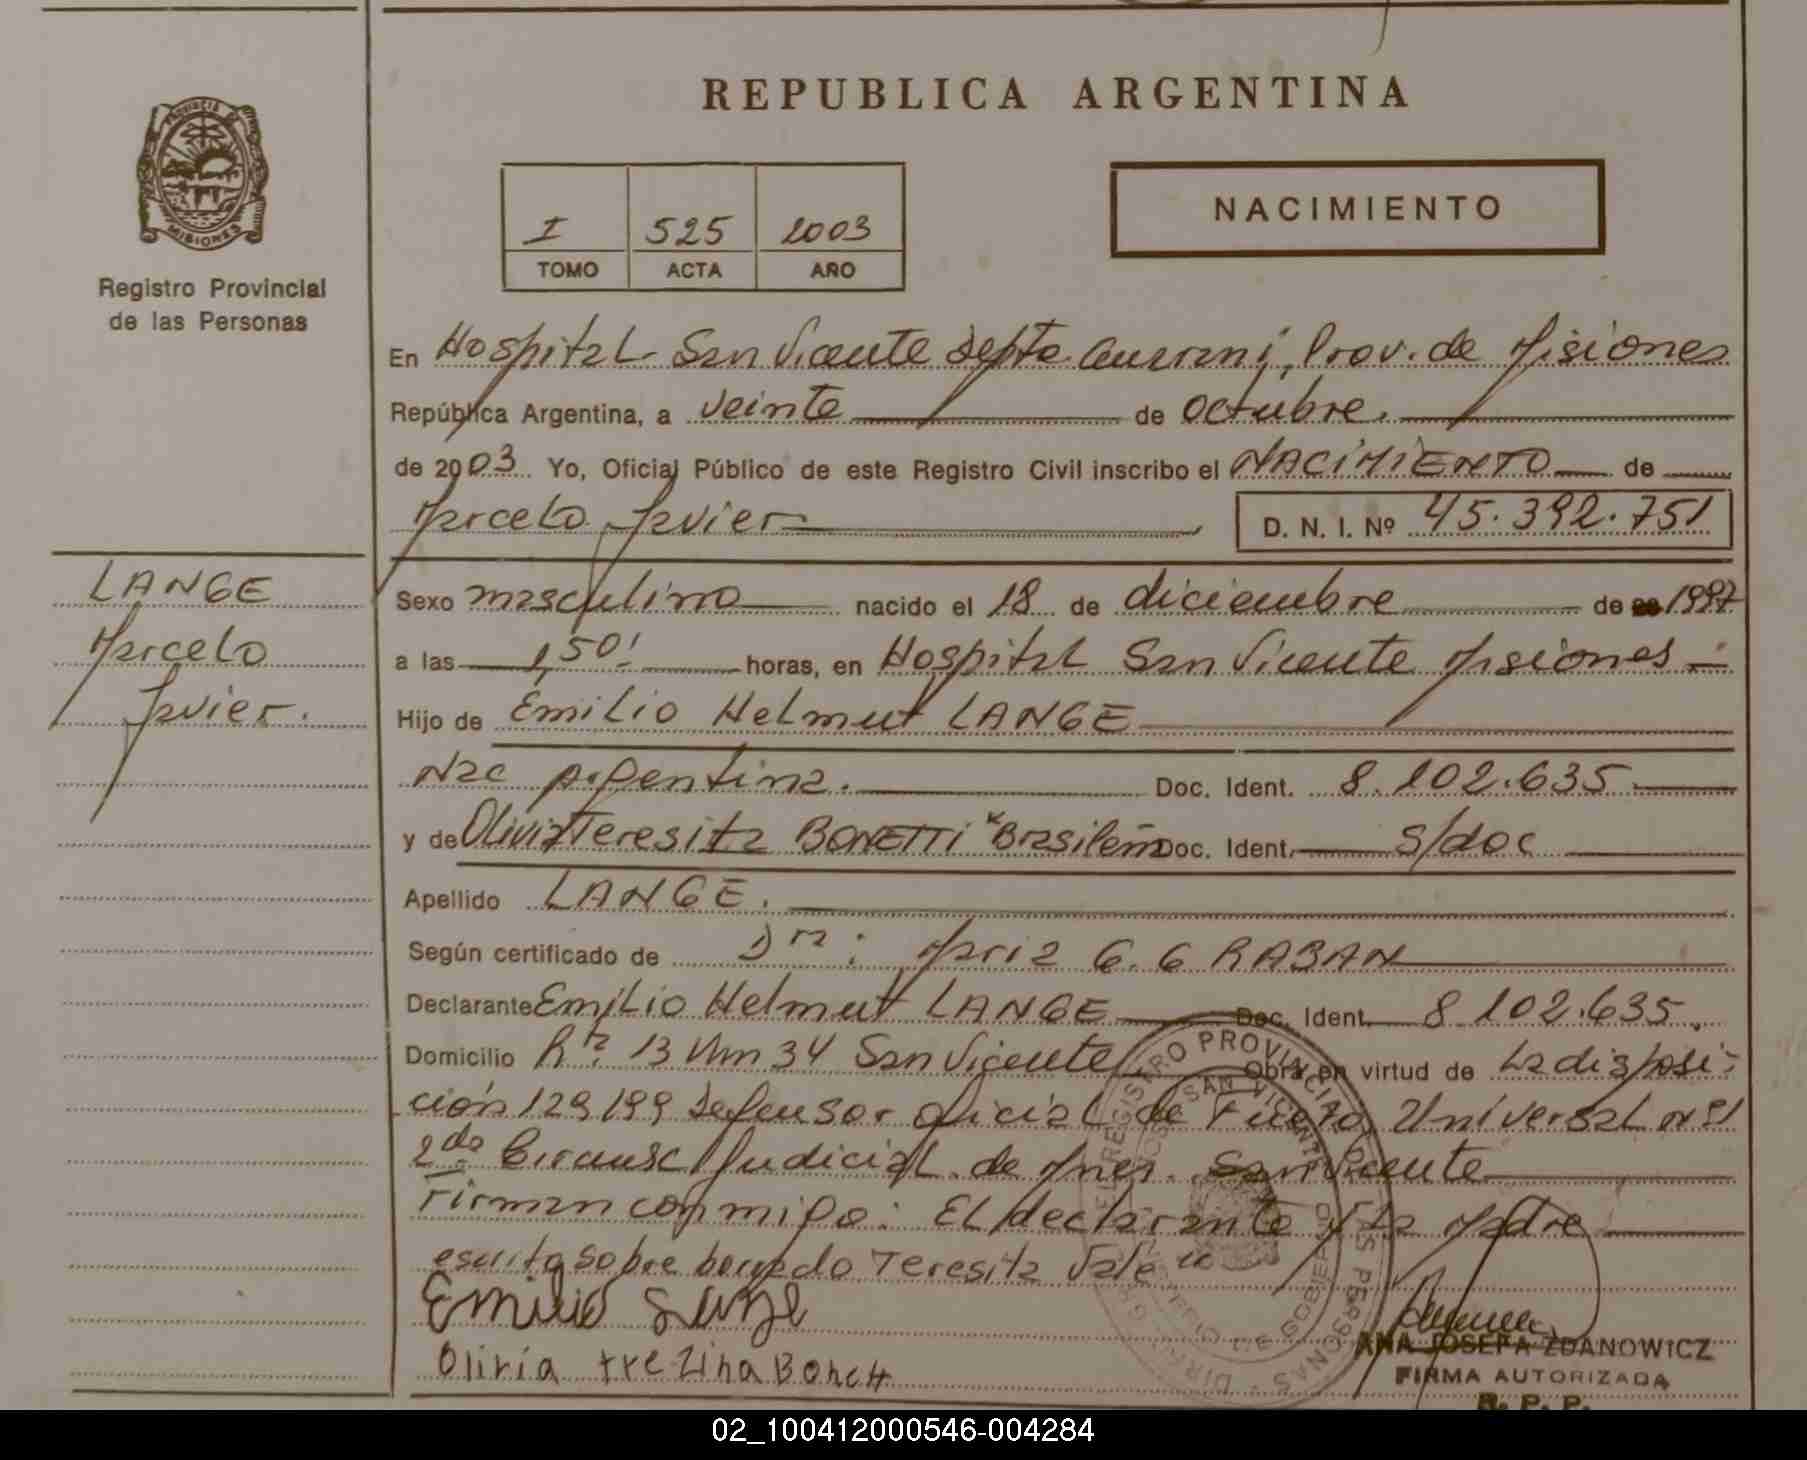 REPUBLICA ARGENTINA
PROVINCIA
MISIONES
Registro Provincial
de las Personas
I 525 2003
TOMO ACTA AÑO
NACIMIENTO
En Hospital San Vicente Depto. Guarani, Prov. de Misiones
República Argentina, a Veinte de Octubre.
de 2003 Yo, Oficial Público de este Registro Civil inscribo el NACIMIENTO de
Marcelo Javier D. N. I. Nº 45.392.751
LANGE
Marcelo
Javier.
Sexo masculino nacido el 18 de diciembre de 1997
a las 1,50' horas, en Hospital San Vicente Misiones
Hijo de Emilio Helmut LANGE
Nac Argentina. Doc. Ident. 8.102.635
y de Olivia Teresita BONETTI Brasileña Doc. Ident. S/doc
Apellido LANGE.
Según certificado de Dra: Maria G. G RABAN
Declarante Emilio Helmut LANGE Doc. Ident. 8.102.635.
Domicilio Rta. 13 Km 34 San Vicente Obra en virtud de La disposi-
ción 129/99 Defensor oficial de Fuero Universal Nº1
2da Circunsc Judicial de Mnes. San Vicente
Firman conmigo: El declarante y La Madre
escrito sobre borrado Teresita Vale
Emilio Lange
Oliria trezina Bonett
REGISTRO PROVINCIAL DE LAS PERSONAS
SAN VICENTE
ANA JOSEFA ZDANOWICZ
FIRMA AUTORIZADA
R. P. P.
02_100412000546-004284